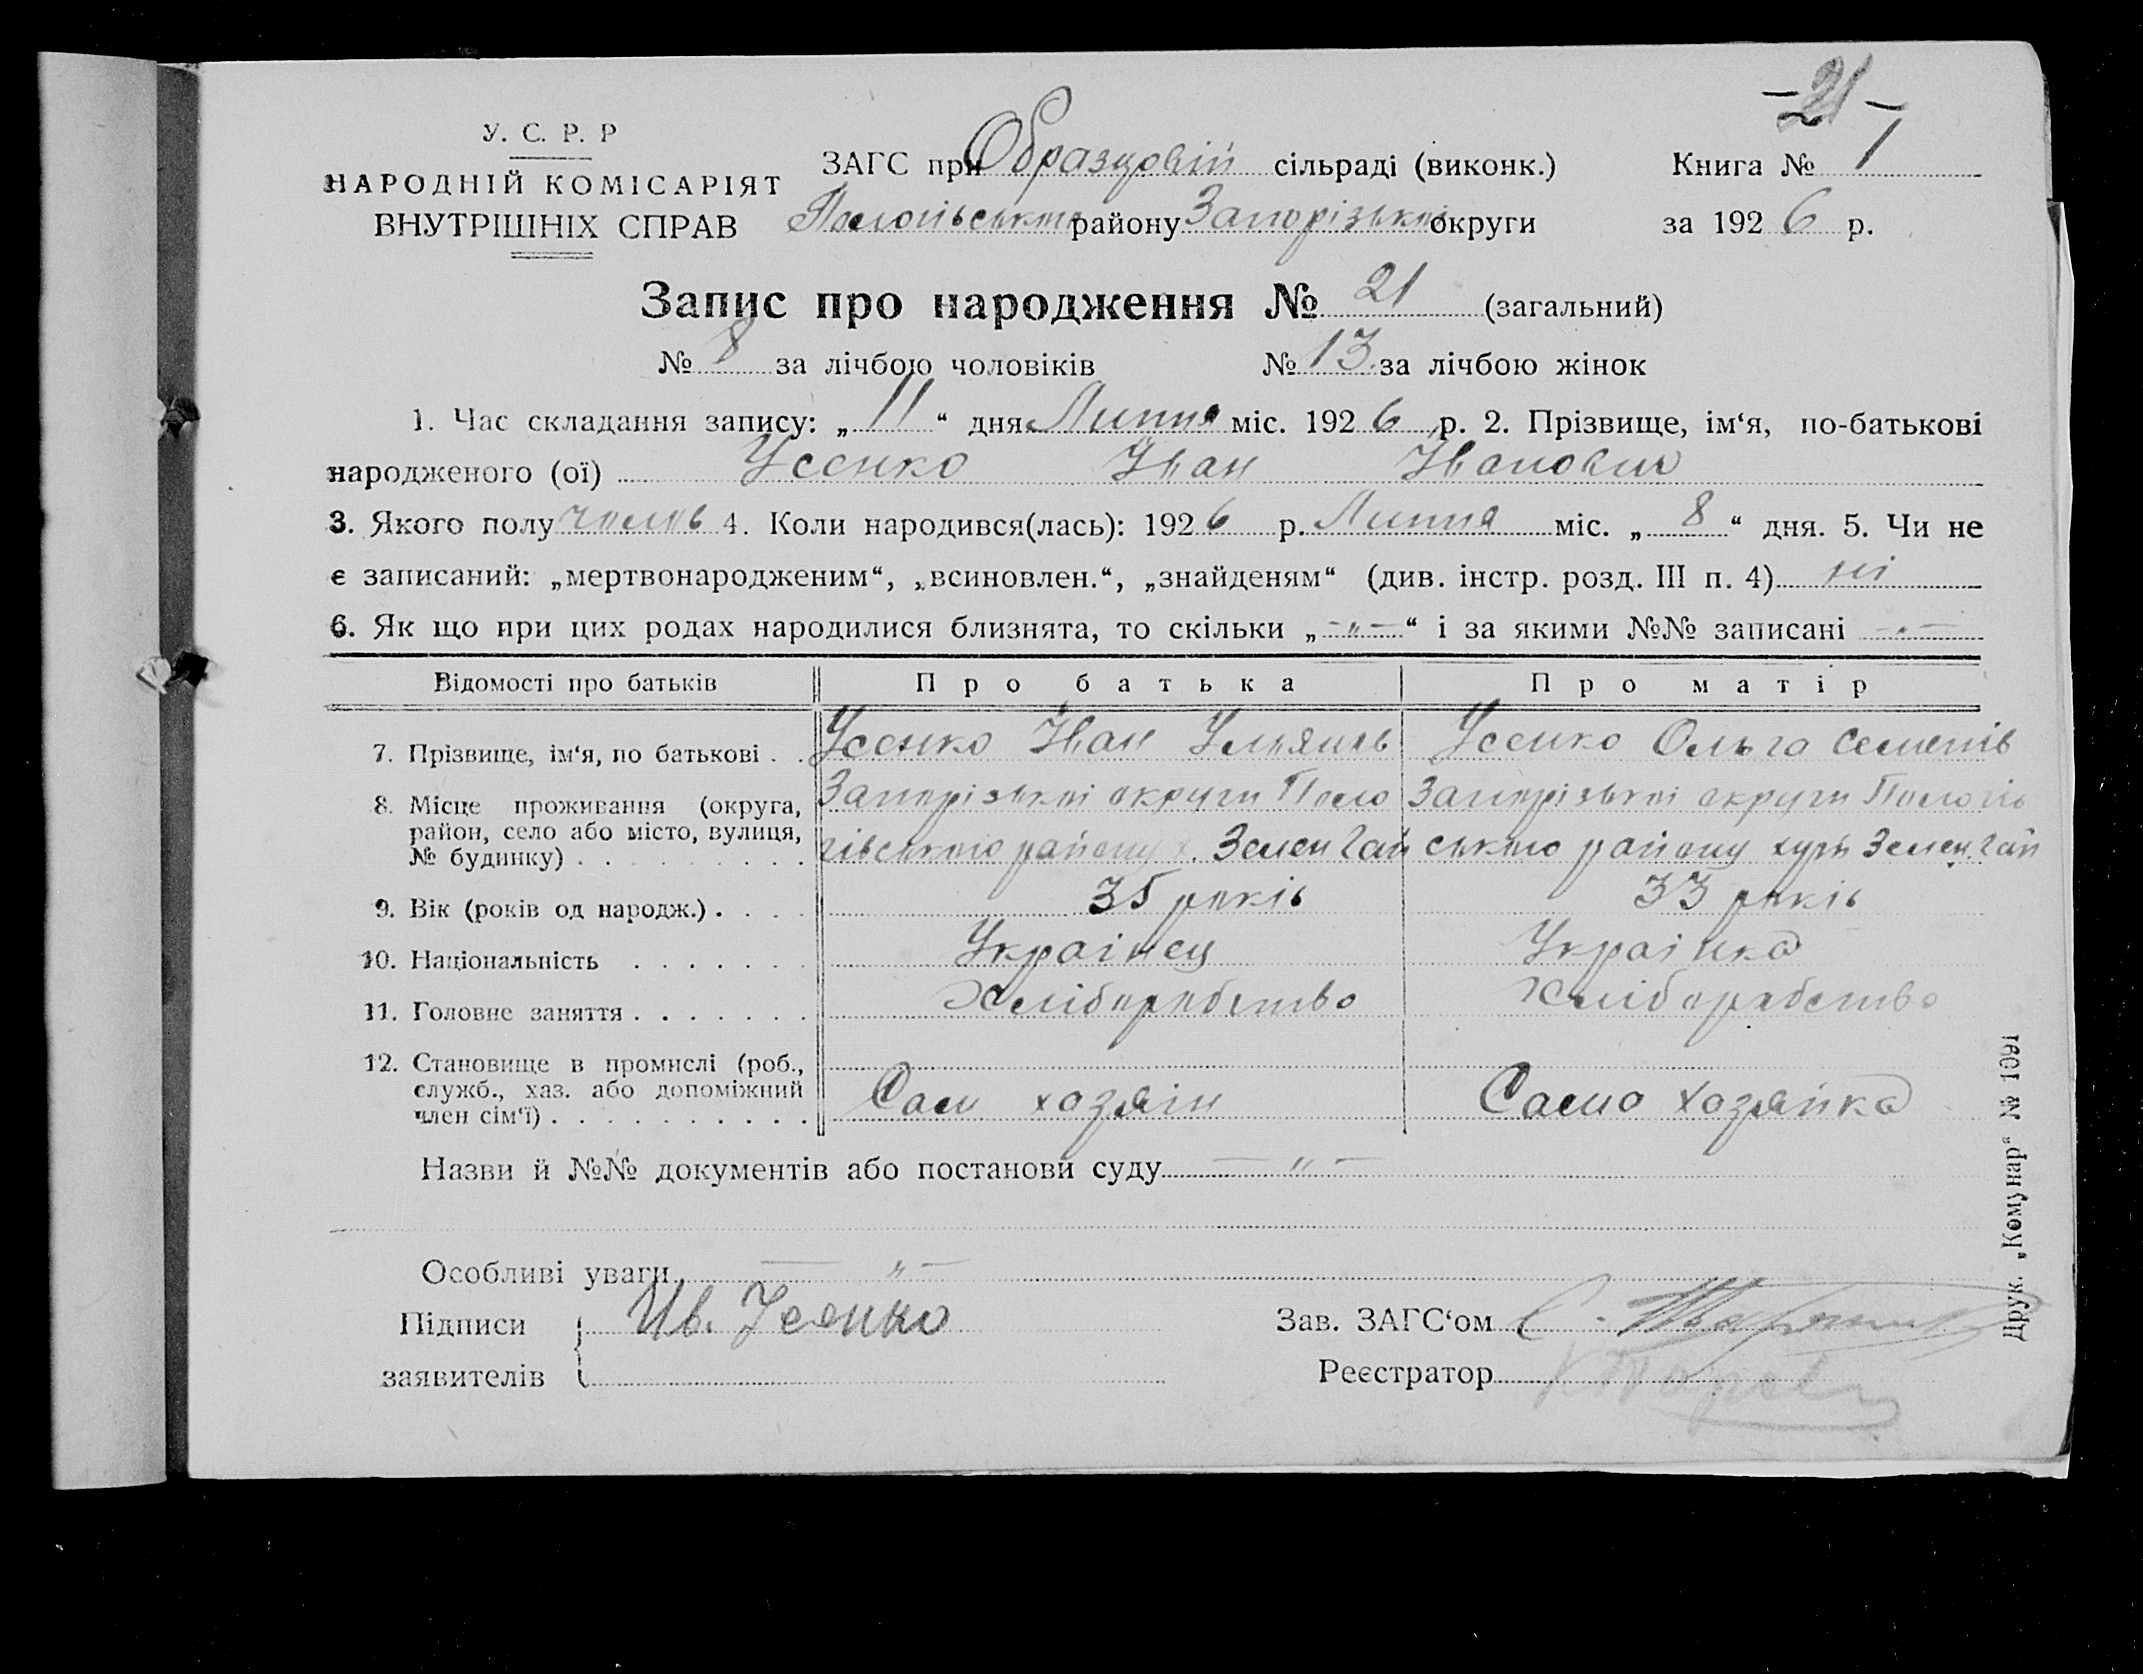 -21-
У. С. Р. Р
НАРОДНІЙ КОМІСАРІЯТ
ВНУТРІШНІХ СПРАВ
ЗАГС при Образцовій сільраді (виконк.) Книга № 1
Пологівського району Запорізької округи за 1926 р.
Запис про народження № 21 (загальний)
№ 8 за лічбою чоловіків № 13 за лічбою жінок
1. Час складання запису: „11“ дня Липня міс. 1926 р. 2. Прізвище, ім‘я, по-батькові
народженого (ої) Усенко Іван Іванович
3. Якого полу чолов 4. Коли народився(лась): 1926 р. Липня міс. „8“ дня. 5. Чи не
є записаний: „мертвонародженим“, „всиновлен.“, „знайденям“ (див. інстр. розд. III п. 4) ні
6. Як що при цих родах народилися близнята, то скільки „-„-“ і за якими №№ записані -„-
Відомості про батьків Про батька Про матір
7. Прізвище, ім‘я, по батькові . . Усенко Іван Ульянів Усенко Ольга Семенів
8. Місце проживання (округа, Запорізької округи Поло Запорізької округи Пологів
район, село або місто, вулиця,
№ будинку) . . . . . . . . . гівського району х. Зелен Гай ського району хут Зелен. Гай
9. Вік (років од народж.) . . . . 35 років 33 років
10. Національність . . . . . . . Украінец Украінка
11. Головне заняття . . . . . . . Хліборобство Хліборобство
12. Становище в промислі (роб.,
служб., хаз. або допоміжний Сам хозяін Сама хозяйка
член сім‘ї) . . . . . . . . . .
Назви й №№ документів або постанови суду — „ —
Особливі уваги — „ —
Підписи Ив. Усенко Зав. ЗАГС‘ом С.
заявителів Реєстратор
Друк. „Комунар“ № 1091